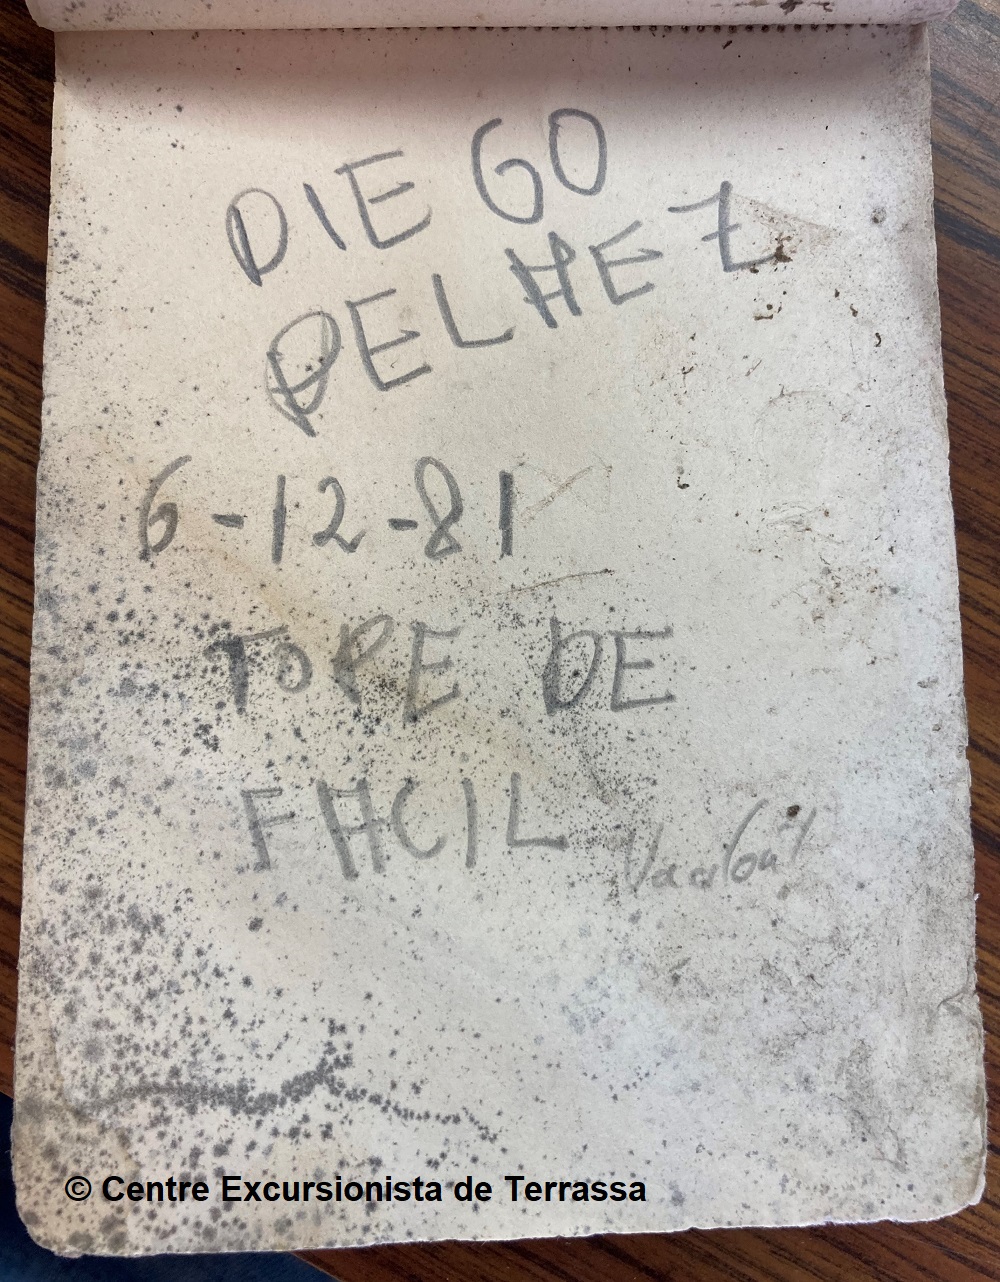 DIEGO
PELAEZ
6-12-81
TOPE DE
FACIL
© Centre Excursionista de Terrassa